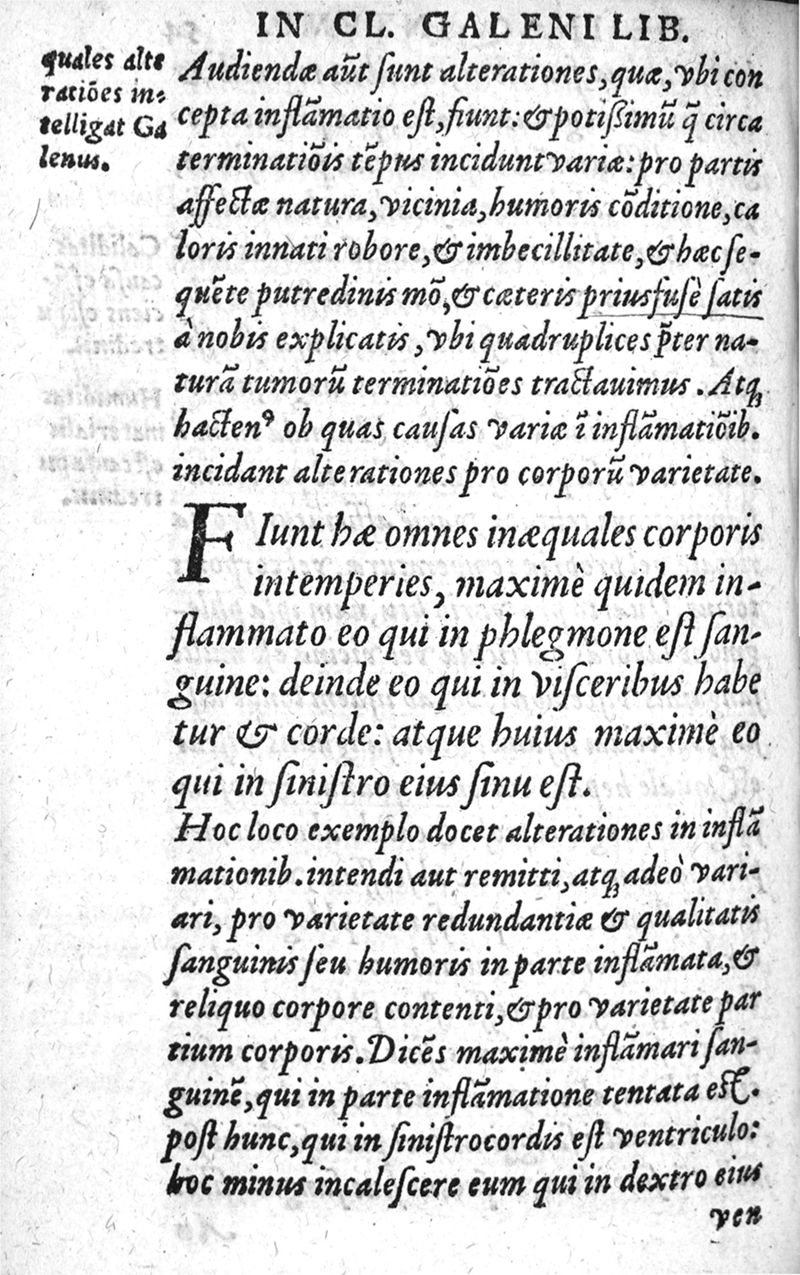 IN CL. GALENI LIB.
quales alte
ratiões in-
telligat Ga
lenus.
Audiendæ aũt sunt alterationes, quæ, vbi con
cepta inflãmatio est, fiunt: & potißimũ q̃ circa
terminatiõis tẽpus incidunt variæ: pro partis
affectæ natura, vicinia, humoris cõditione, ca
loris innati robore, & imbecillitate, & hæc se-
quẽte putredinis mõ, & cæteris prius fusè satis
à nobis explicatis, vbi quadruplices p̃ter na-
turã tumorũ terminatiões tractauimus. Atq;
hactenꝰ ob quas causas variæ ĩ inflãmatiõib.
incidant alterationes pro corporũ varietate.
FIunt hæ omnes inæquales corporis
intemperies, maximè quidem in-
flammato eo qui in phlegmone est san-
guine: deinde eo qui in visceribus habe
tur & corde: atque huius maximè eo
qui in sinistro eius sinu est.
Hoc loco exemplo docet alterationes in inflã
mationib. intendi aut remitti, atq; adeò vari-
ari, pro varietate redundantiæ & qualitatis
sanguinis seu humoris in parte inflãmata, &
reliquo corpore contenti, & pro varietate par
tium corporis. Dicẽs maximè inflãmari san-
guinẽ, qui in parte inflãmatione tentata est.
post hunc, qui in sinistro cordis est ventriculo:
hoc minus incalescere eum qui in dextro eius
ven